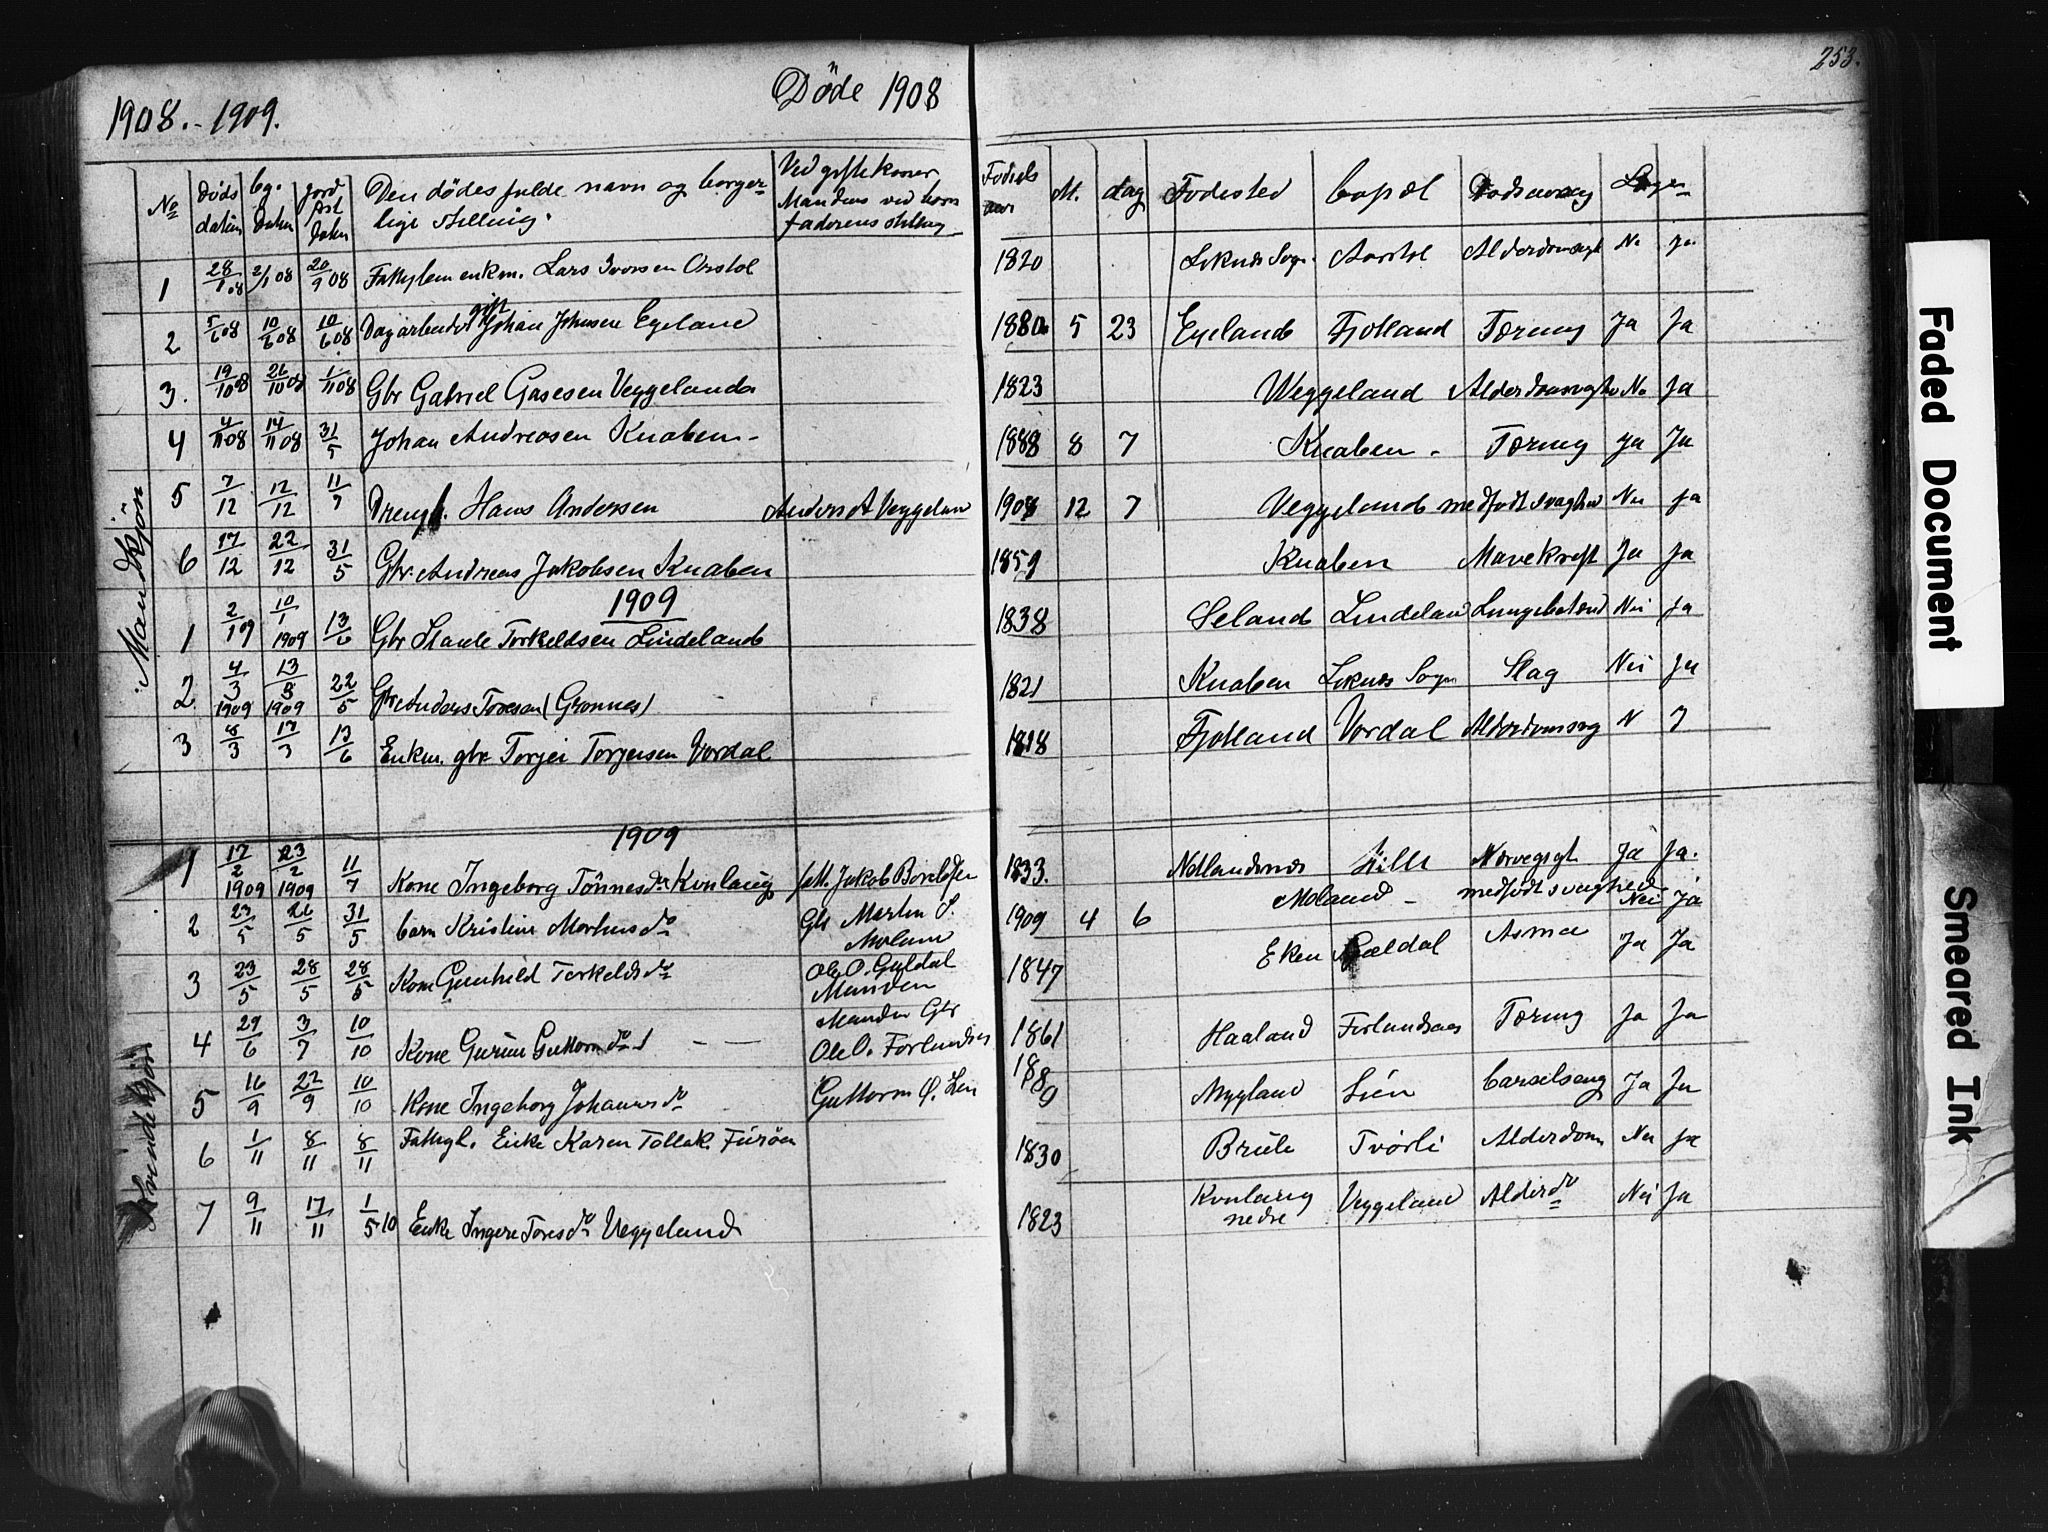 253.
Döde 1908
1908.-1909.
No Döds datum bg. Datum Jord fast Datum Den dödes fulde navn og borger= lige stilling. Ved giftekoner Mandens ved barn faderens stilling Födsels aar M. dag Födested Bopæl Dödsaarsag Læge
Mandkjön
1 28/1 08 2/1 08 20/9 08 Fattiglem enkm. Lars Iversen Orstol 1820 Alderdomssvgh Ne ja
2 5/6 08 10/6 08 10/6 08 Dagarbeider gift Johan Johnsen Egeland 1880 5 23 Egeland Fjotland Tæring Ja Ja
3. 19/10 08 26/10 08 1/11 08 Gbr Gabriel Gasesen Veggeland 1823 Weggeland Alderdomssvgh Ne Ja
4 4/11 08 14/11 08 31/5 Johan Andreasen Knaben - 1888 8 7 Knaben - Tæring Ja Ja
5 7/12 12/12 11/7 Drengb. Hans Anderssen Anders A Veggeland 1908 12 7 Veggeland medfödt svaghed Nei ja
6 17/12 22/12 31/5 Gbr. Andreas Jakobsen Knaben 1859 Knaben Mavekreft Ja Ja
1909
1 2/1 09 10/1 1909 13/6 Gbr Staale Torkeldsen Lindeland 1838 Seland Lindeland Lungebetænd Nei Ja
2 4/3 1909 13/3 1909 22/5 Gbr Anders Toresen (Grönnes) 1821 Knaben Sogn Slag Nei Ja
3 8/3 17/3 13/6 Enkm. gbr Torjei Torjensen Vordal 1818 Fjotland Vordal Alderdomssvg N J
1909
Kvindekjön
1 17/2 1909 23/2 1909 11/7 Kone Ingeborg Tönnesdr Kvnlaug Jakob 1833. Ja Ja.
2 23/5 26/5 31/5 barn Kristine Martinsdr Gbr Martin S. Moland 1909 4 6 Moland - medfödt svaghed Nei Ja
3 23/5 28/5 28/5 Kone Gunhild Torkeldsdr Ole O. Gyldal Manden 1847 Eken Asma Ja Ja
4 29/6 3/7 10/10 Kone Gurine Guttormsdr - - Manden Gbr Ole O. Förlandsaas 1861 Haaland Förlandsaas Tæring Ja Ja
5 16/9 22/9 10/10 Kone Ingeborg Johannesdr Guttorm Ö. Lien 1880 Mygland Lien barselseng Ja Ja
6 1/11 8/11 8/11 Fattigl. Enke Karen Tollak. Furöen 1830 Briele Tvörli Alderdom Nei Ja
7 9/11 17/11 1/5 10 Enke Ingere Toresdr Veggeland 1823 Kvnlaug nedre Veggeland Alderdo Nei Ja
Faded Document
Smeared Ink